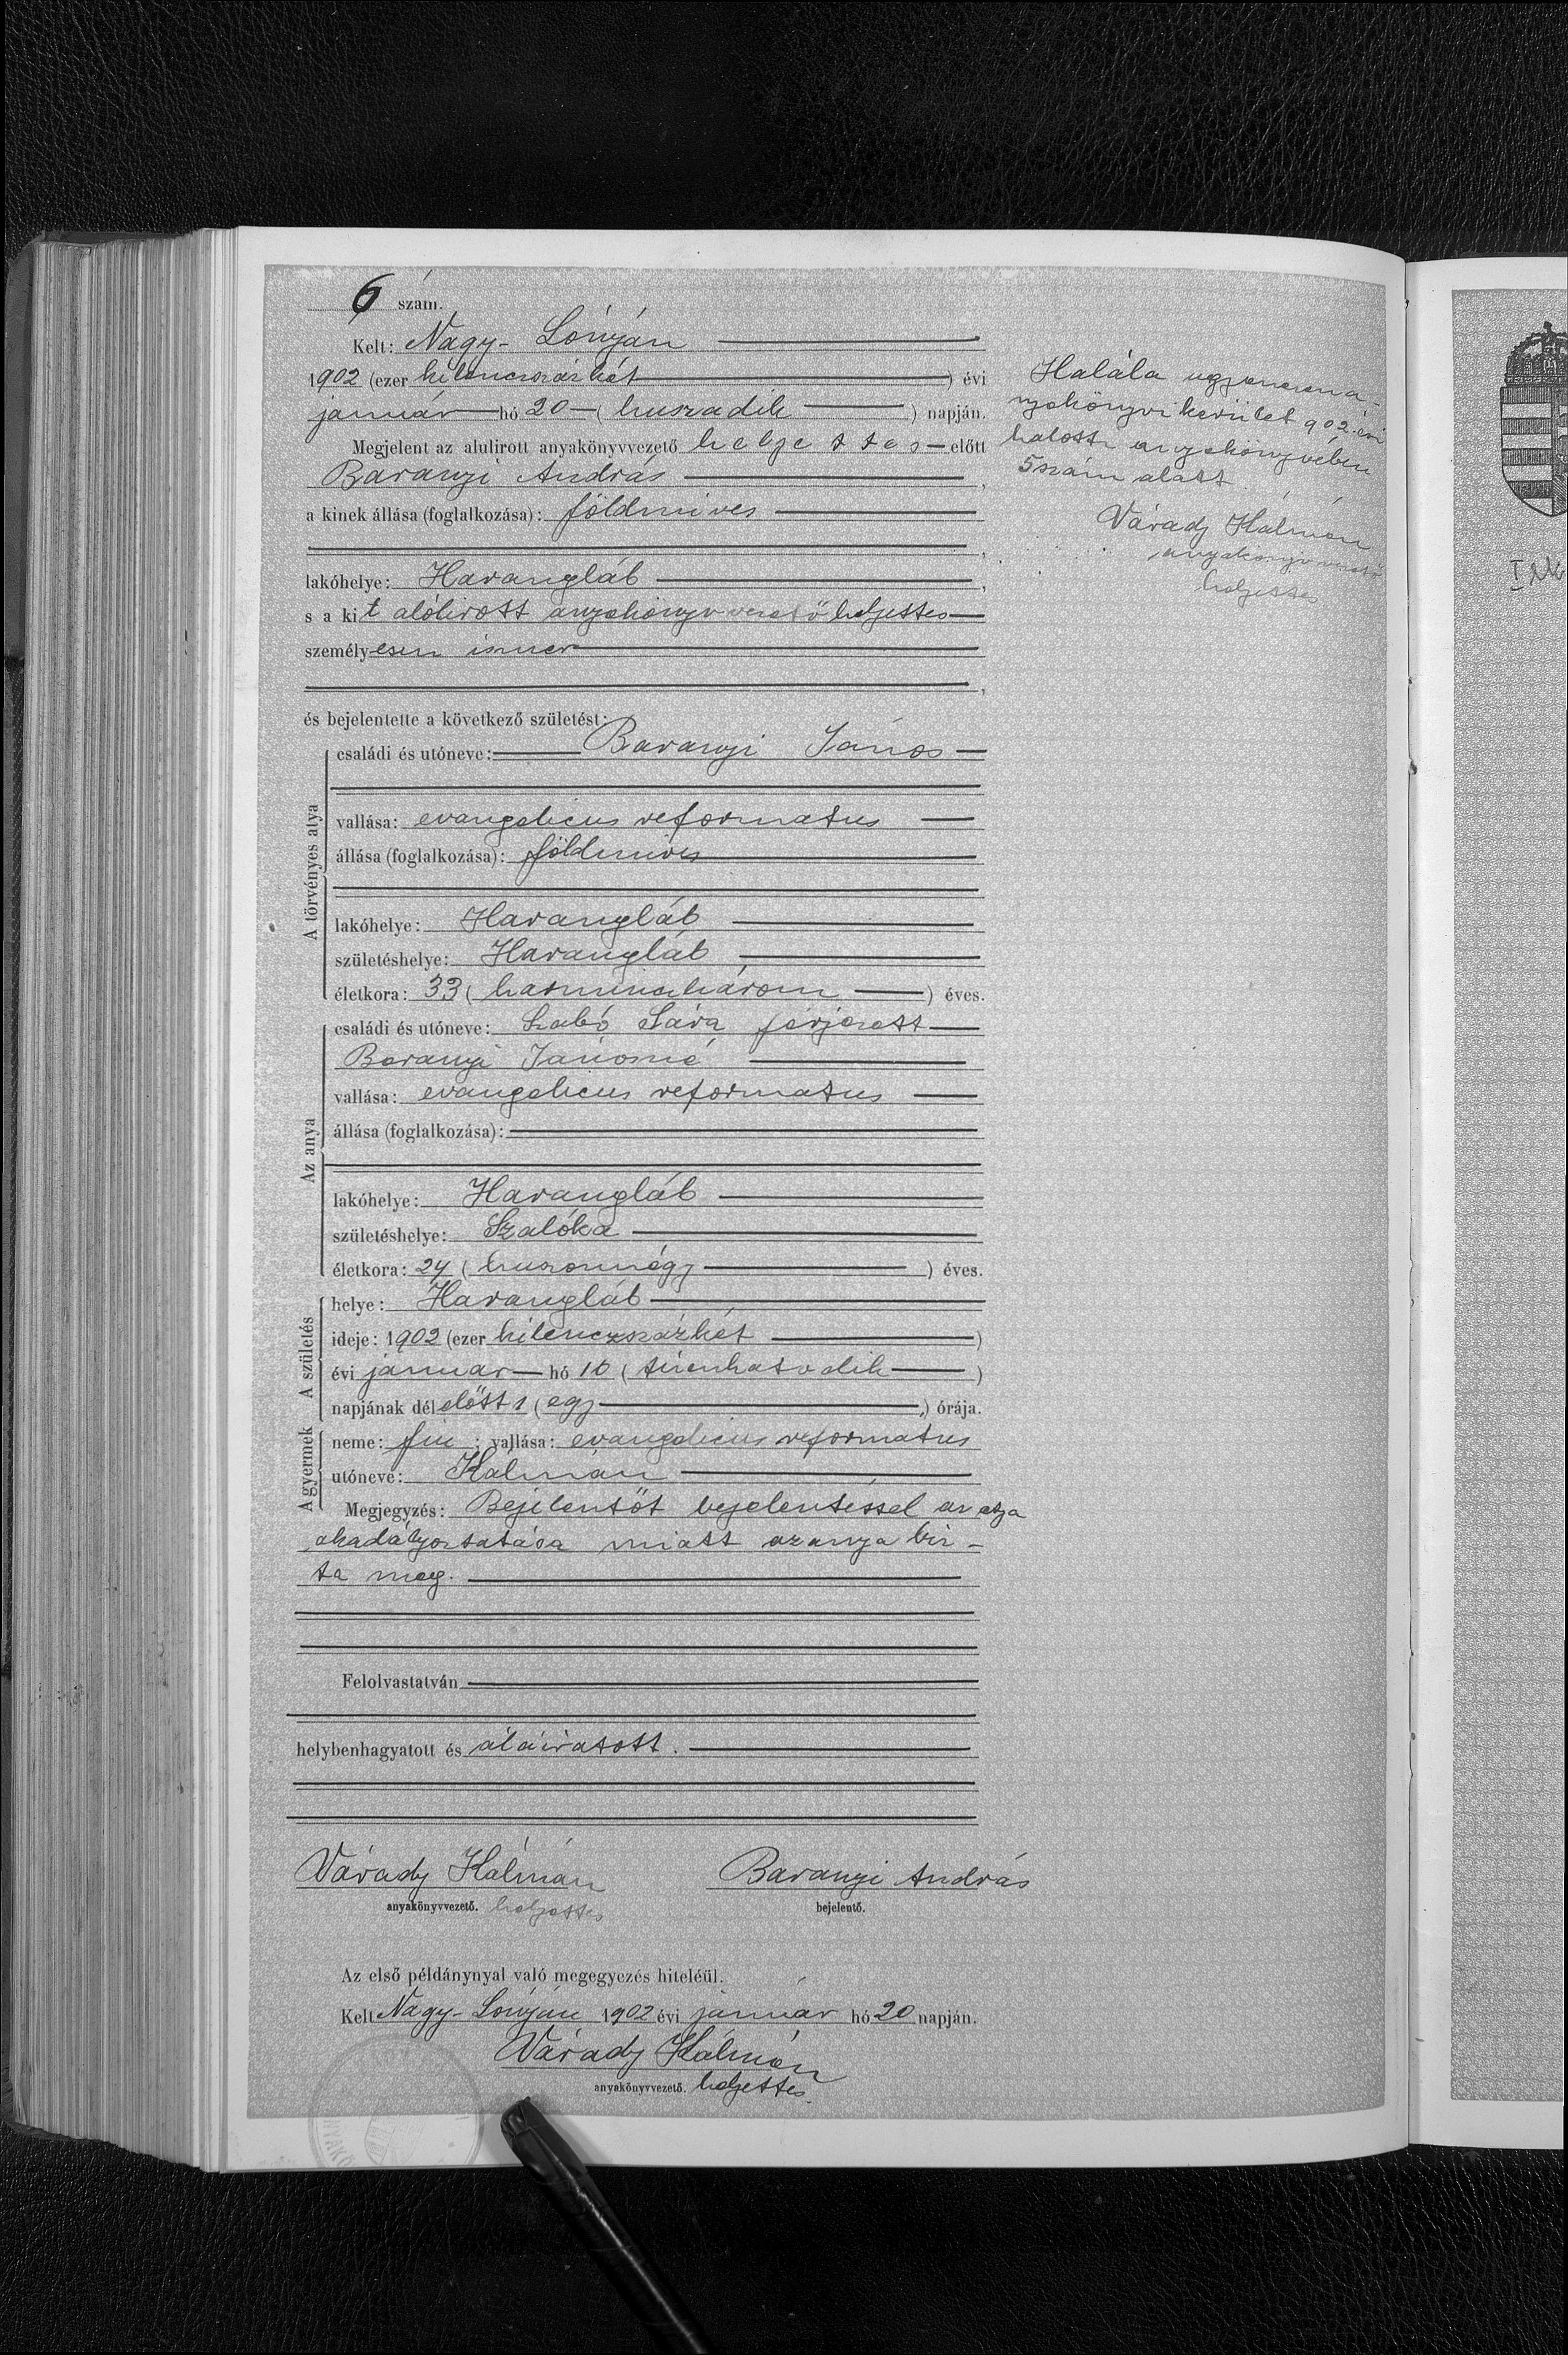 6 szám.
Kelt: Nagy-Lónyán
1902 (ezer kilenczszázkét) évi
január hó 20 (huszadik) napján.
Megjelent az alulirott anyakönyvvezető helyettes előtt
Baranyi András,
a kinek állása (foglalkozása): földmives
lakóhelye: Harangláb,
s a kit alólirott anyakönyvvezető helyettes
személyesen ismer,
és bejelentette a következő születést:
A törvényes atya
családi és utóneve: Baranyi János
vallása: evangelicus reformatus
állása (foglalkozása): földmives
lakóhelye: Harangláb
születéshelye: Harangláb
életkora: 33 (harminczhárom) éves.
Az anya
családi és utóneve: Szabó Sára férjezett
Baranyi Jánosné
vallása: evangelicus reformatus
állása (foglalkozása):
lakóhelye: Harangláb
születéshelye: Szalóka
életkora: 24 (huszonnégy) éves.
A születés
helye: Harangláb
ideje: 1902 (ezer kilenczszázkét)
évi január hó 16 (tizenhatodik)
napjának délelőtt 1 (egy) órája.
A gyermek
neme: fiu; vallása: evangelicus reformatus
utóneve: Kálmán
Megjegyzés: Bejelentőt bejelentéssel az atya
akadályoztatása miatt az anya biz-
ta meg.
Felolvastatván
helybenhagyatott és aláiratott.
Várady Kálmán
anyakönyvvezető. helyettes
Baranyi András
bejelentő.
Az első példánynyal való megegyezés hiteléül.
Kelt Nagy-Lónyán 1902 évi január hó 20 napján.
Várady Kálmán
anyakönyvvezető. helyettes
Halála ugyanezen a-
nyakönyvi kerület 902. évi
halotti anyakönyvében
5 szám alatt
Várady Kálmán
anyakönyvvezető
helyettes